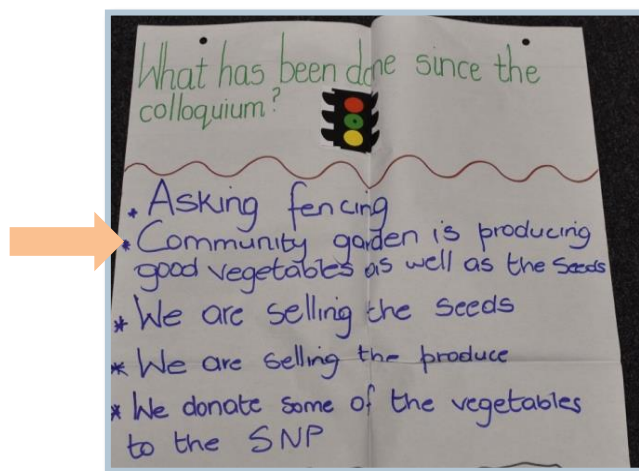 What has been done since the
colloquium?
* Asking fencing
* Community garden is producing
good vegetables as well as the seeds
* We are selling the seeds
* We are selling the produce
* We donate some of the vegetables
to the SNP